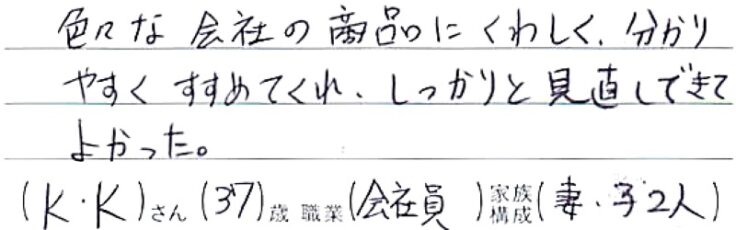 色々な会社の商品にくわしく、分かり
やすくすすめてくれ、しっかりと見直しできて
よかった。
(K・K)さん(37)歳 職業(会社員 )家族構成(妻、子2人)